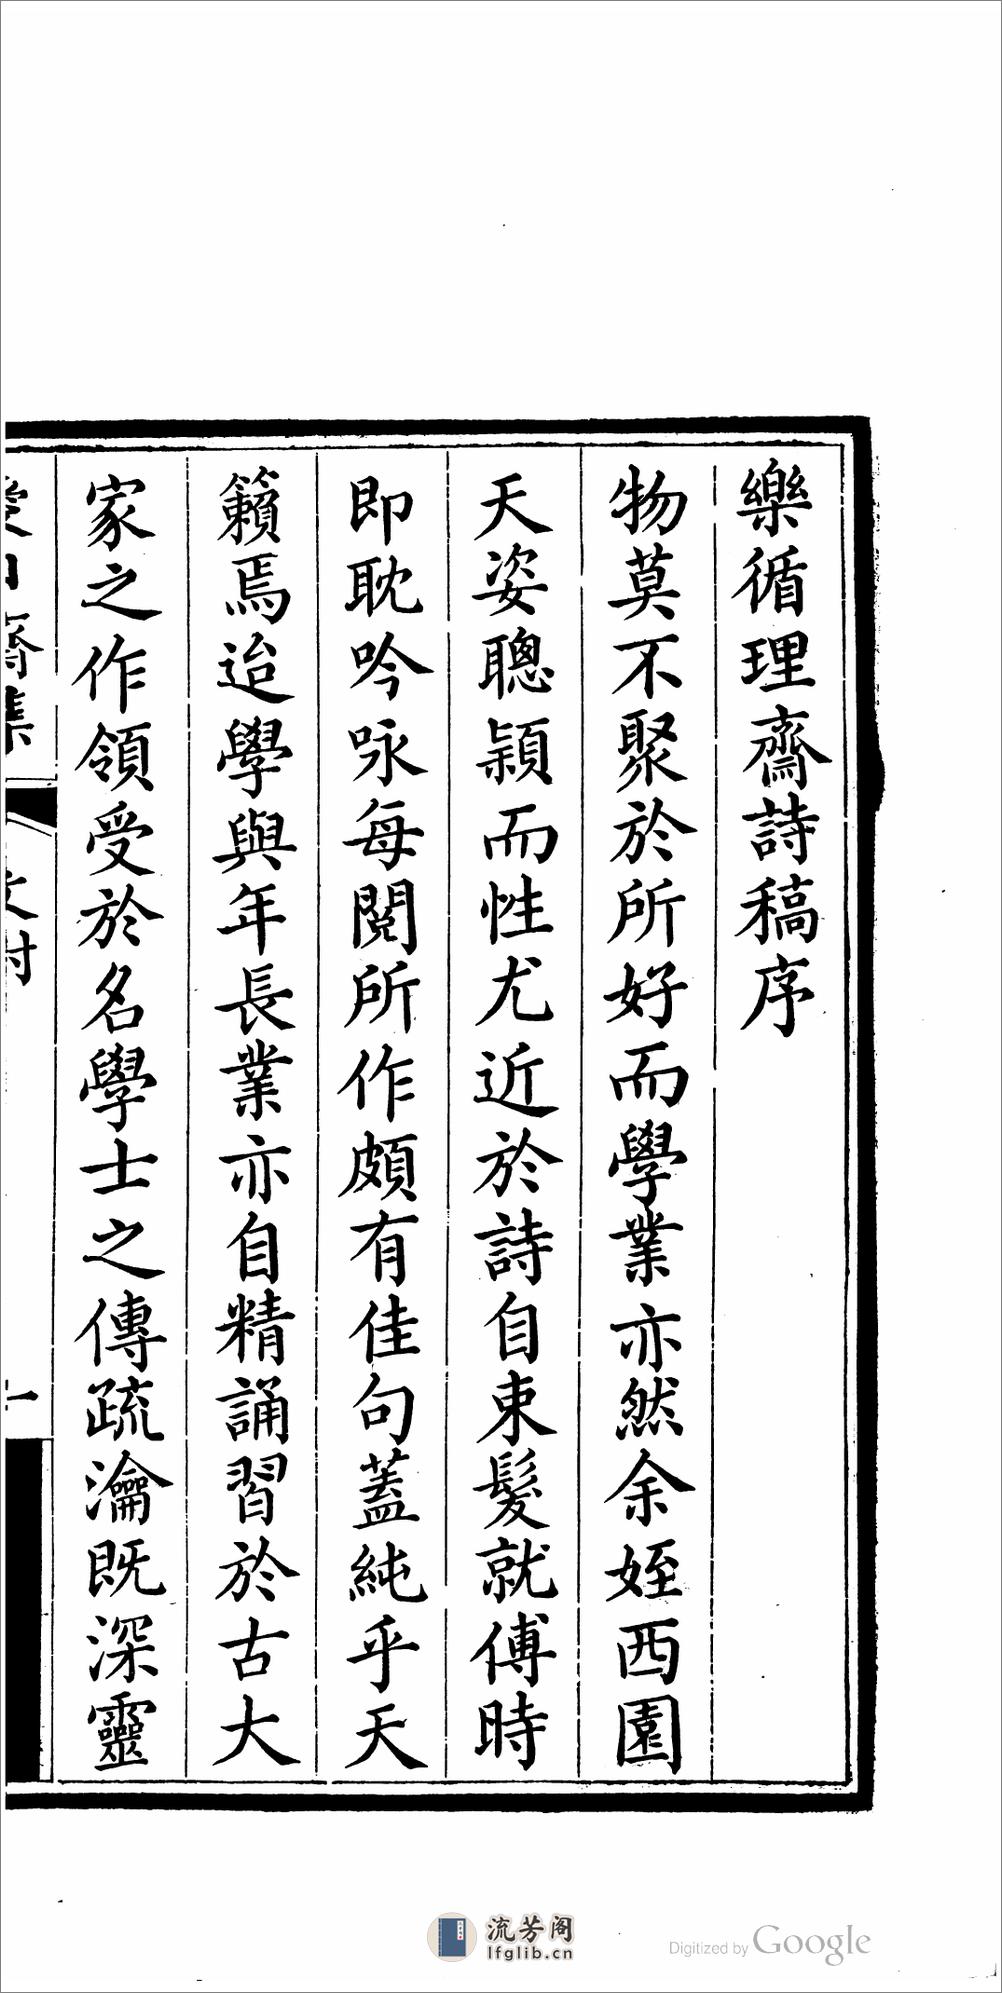 樂循理齋詩稿序
物莫不聚於所好而學業亦然余姪西園
天姿聰穎而性尤近於詩自束髮就傅時
即耽吟咏每閱所作頗有佳句蓋純乎天
籟焉迨學與年長業亦自精誦習於古大
家之作領受於名學士之傳疏瀹既深靈
齋集
流芳阁
lfglib.cn
Digitized by Google